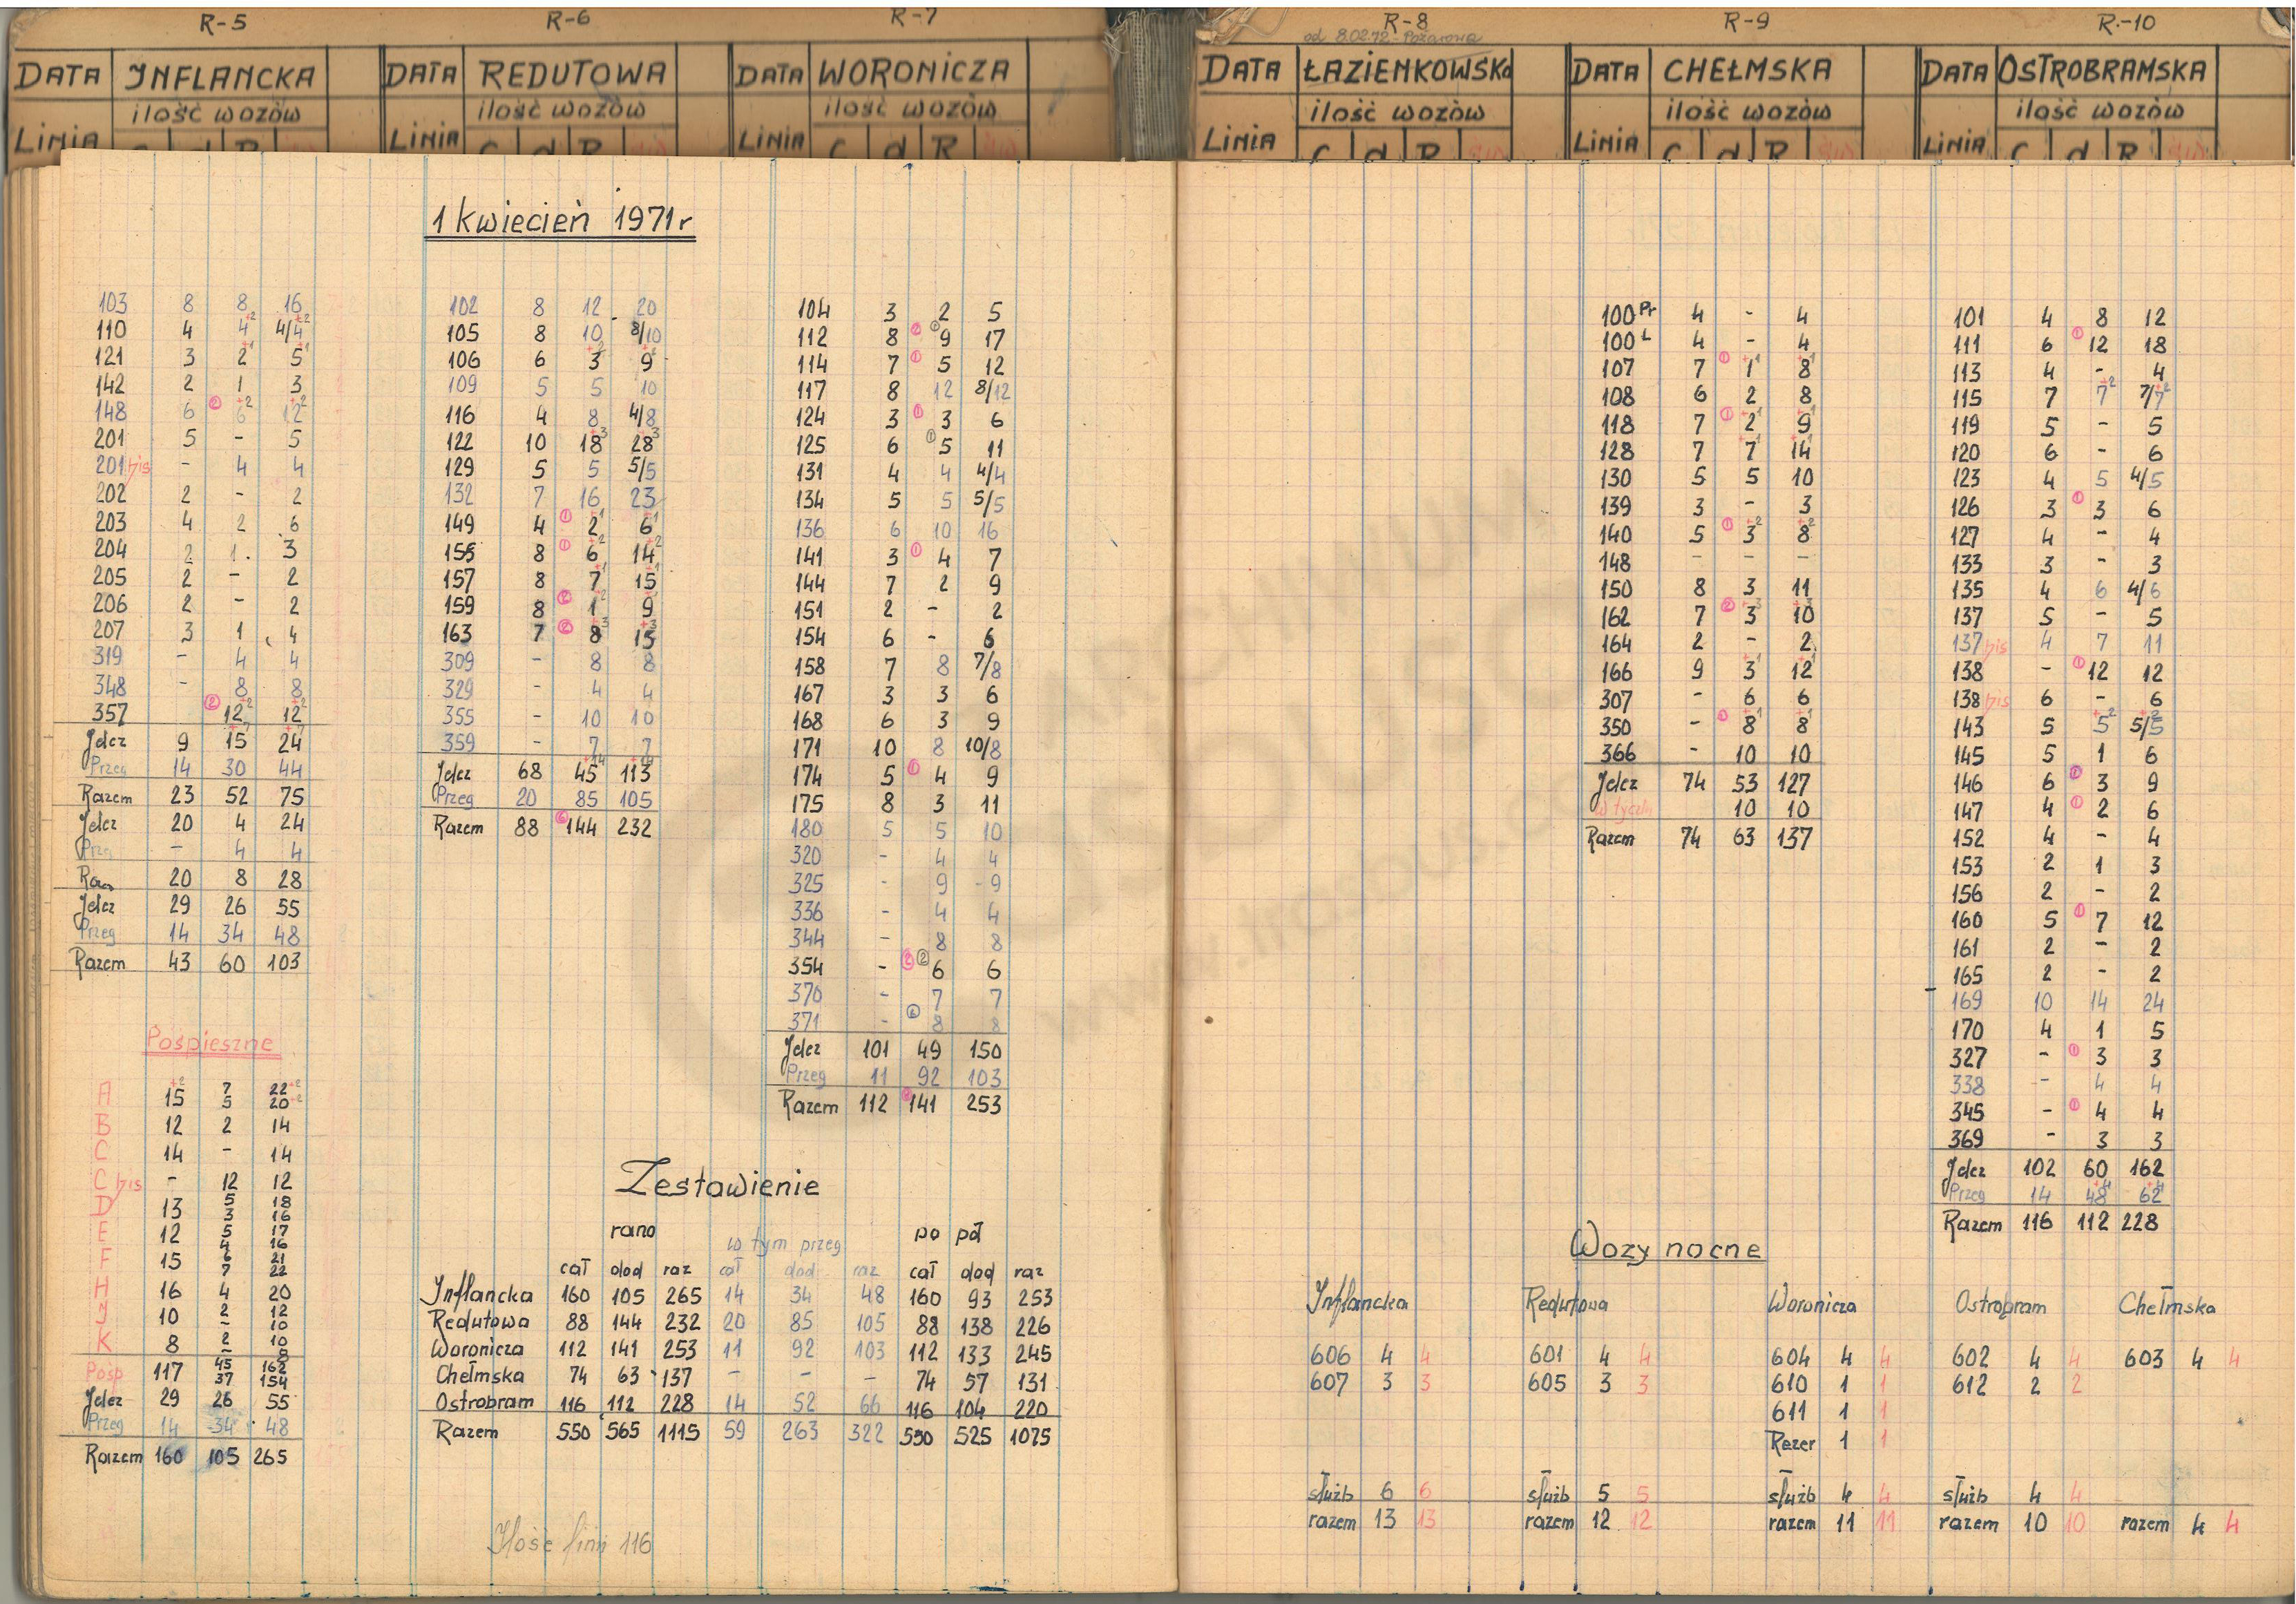 R-5
DATA INFLANCKA
ilość wozów
Linia C d R
R-6
DATA REDUTOWA
ilość wozów
Linia C d R
R-7
DATA WORONICZA
ilość wozów
Linia C d R
R-8
od 8.02.72 - Pożarowa
DATA ŁAZIENKOWSKA
ilość wozów
Linia C d R
R-9
DATA CHEŁMSKA
ilość wozów
Linia C d R
R-10
DATA OSTROBRAMSKA
ilość wozów
Linia C d R
1 kwiecień 1971r
103 8 8 16
110 4 4+2 4/4+2
121 3 2+1 5+1
142 2 1 3
148 6 ② 6+2 12+2
201 5 - 5
201 bis - 4 4
202 2 - 2
203 4 2 6
204 2 1 3
205 2 - 2
206 2 - 2
207 3 1 4
319 - 4 4
348 - 8 8
357 ② 12+2 12+2
Jelcz 9 15+7 24+7
Przeg 14 30 44
Razem 23 52 75
Jelcz 20 4 24
Prze - 4 4
Raz 20 8 28
Jelcz 29 26 55
Przeg 14 34 48
Razem 43 60 103
Pośpieszne
A 15+2 7 22+2
5 20+2
B 12 2 14
C 14 - 14
C bis - 12 12
D 13 5 18
3 16
E 12 5 17
4 16
F 15 6 21
7 22
H 16 4 20
J 10 2 12
- 10
K 8 2 10
- 8
Pośp 117 45 162
37 154
Jelcz 29 26 55
Przeg 14 34 48
Razem 160 105 265
102 8 12 20
105 8 10 8/10
106 6 3+2 9+2
109 5 5 10
116 4 8 4/8
122 10 18+3 28+3
129 5 5 5/5
132 7 16 23
149 4 ① 2+1 6+1
155 8 ① 6+2 14+2
157 8 7+1 15+1
159 8 ② 1+2 9+2
163 7 ② 8+3 15+3
309 - 8 8
329 - 4 4
355 - 10 10
359 - 7 7
Jelcz 68 45+14 113+14
Przeg 20 85 105
Razem 88 ⑥ 144 232
104 3 2 5
112 8 ② ① 9 17
114 7 ① 5 12
117 8 12 8/12
124 3 ① 3 6
125 6 ① 5 11
131 4 4 4/4
134 5 5 5/5
136 6 10 16
141 3 ① 4 7
144 7 2 9
151 2 - 2
154 6 - 6
158 7 8 7/8
167 3 3 6
168 6 3 9
171 10 8 10/8
174 5 ① 4 9
175 8 3 11
180 5 5 10
320 - 4 4
325 - 9 9
336 - 4 4
344 - 8 8
354 - ② ② 6 6
370 - 7 7
371 - 8 8
Jelcz 101 49 150
Przeg 11 92 103
Razem 112 141 253
Zestawienie
rano w tym przeg po poł
cał dod raz cał dod raz cał dod raz
Inflancka 160 105 265 14 34 48 160 93 253
Redutowa 88 144 232 20 85 105 88 138 226
Woronicza 112 141 253 11 92 103 112 133 245
Chełmska 74 63 137 - - - 74 57 131
Ostrobram 116 112 228 14 52 66 116 104 220
Razem 550 565 1115 59 263 322 550 525 1075
Ilość linii 116
100 Pr 4 - 4
100 L 4 - 4
107 7 ① 1+1 8+1
108 6 2 8
118 7 ① 2+1 9+1
128 7 7+1 14+1
130 5 5 10
139 3 - 3
140 5 ① 3+2 8+2
148 - - -
150 8 3 11
162 7 ② 3+3 10+3
164 2 - 2
166 9 3+1 12+1
307 - 6 6
350 - ① 8+1 8+1
366 - 10 10
Jelcz 74 53 127
10 10
Razem 74 63 137
101 4 8 12
111 6 ① 12 18
113 4 - 4
115 7 7+2 7/7+2
119 5 - 5
120 6 - 6
123 4 5 4/5
126 3 ① 3 6
127 4 - 4
133 3 - 3
135 4 6 4/6
137 5 - 5
137 bis 4 7 11
138 - ① 12 12
138 bis 6 - 6
143 5 5+2 5/5+2
145 5 1 6
146 6 ① 3 9
147 4 ① 2 6
152 4 - 4
153 2 1 3
156 2 - 2
160 5 ① 7 12
161 2 - 2
165 2 - 2
169 10 14 24
170 4 1 5
327 - ① 3 3
338 - 4 4
345 - ① 4 4
369 - 3 3
Jelcz 102 60 162
Przeg 14 48+4 62+4
Razem 116 112 228
Wozy nocne
Inflancka Redutowa Woronicza Ostrobram Chełmska
606 4 4 601 4 4 604 4 4 602 4 4 603 4 4
607 3 3 605 3 3 610 1 1 612 2 2
611 1 1
Rezer 1 1
służb 6 6 służb 5 5 służb 4 4 służb 4 4
razem 13 13 razem 12 12 razem 11 11 razem 10 10 razem 4 4